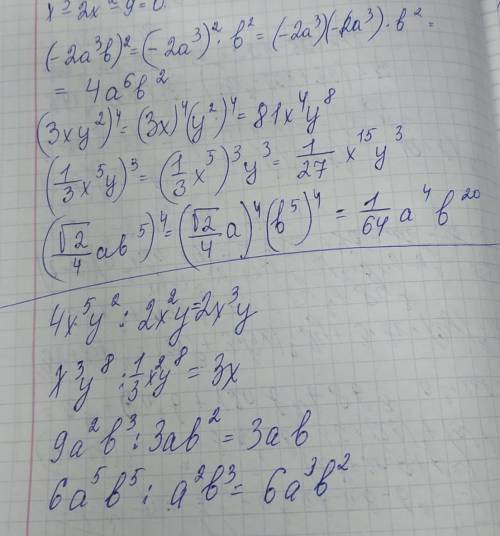 (-2a³b)² = (-2a³)² · b² = (-2a³)(-2a³) · b² =
= 4a⁶b²
(3xy²)⁴ = (3x)⁴(y²)⁴ = 81x⁴y⁸
(1/3 x⁵y)³ = (1/3 x⁵)³ y³ = 1/27 x¹⁵y³
(√2/4 ab⁵)⁴ = (√2/4 a)⁴ (b⁵)⁴ = 1/64 a⁴b²⁰
4x⁵y² : 2x²y = 2x³y
x³y⁸ : 1/3 x²y⁸ = 3x
9a²b³ : 3ab² = 3ab
6a⁵b⁵ : a²b³ = 6a³b²